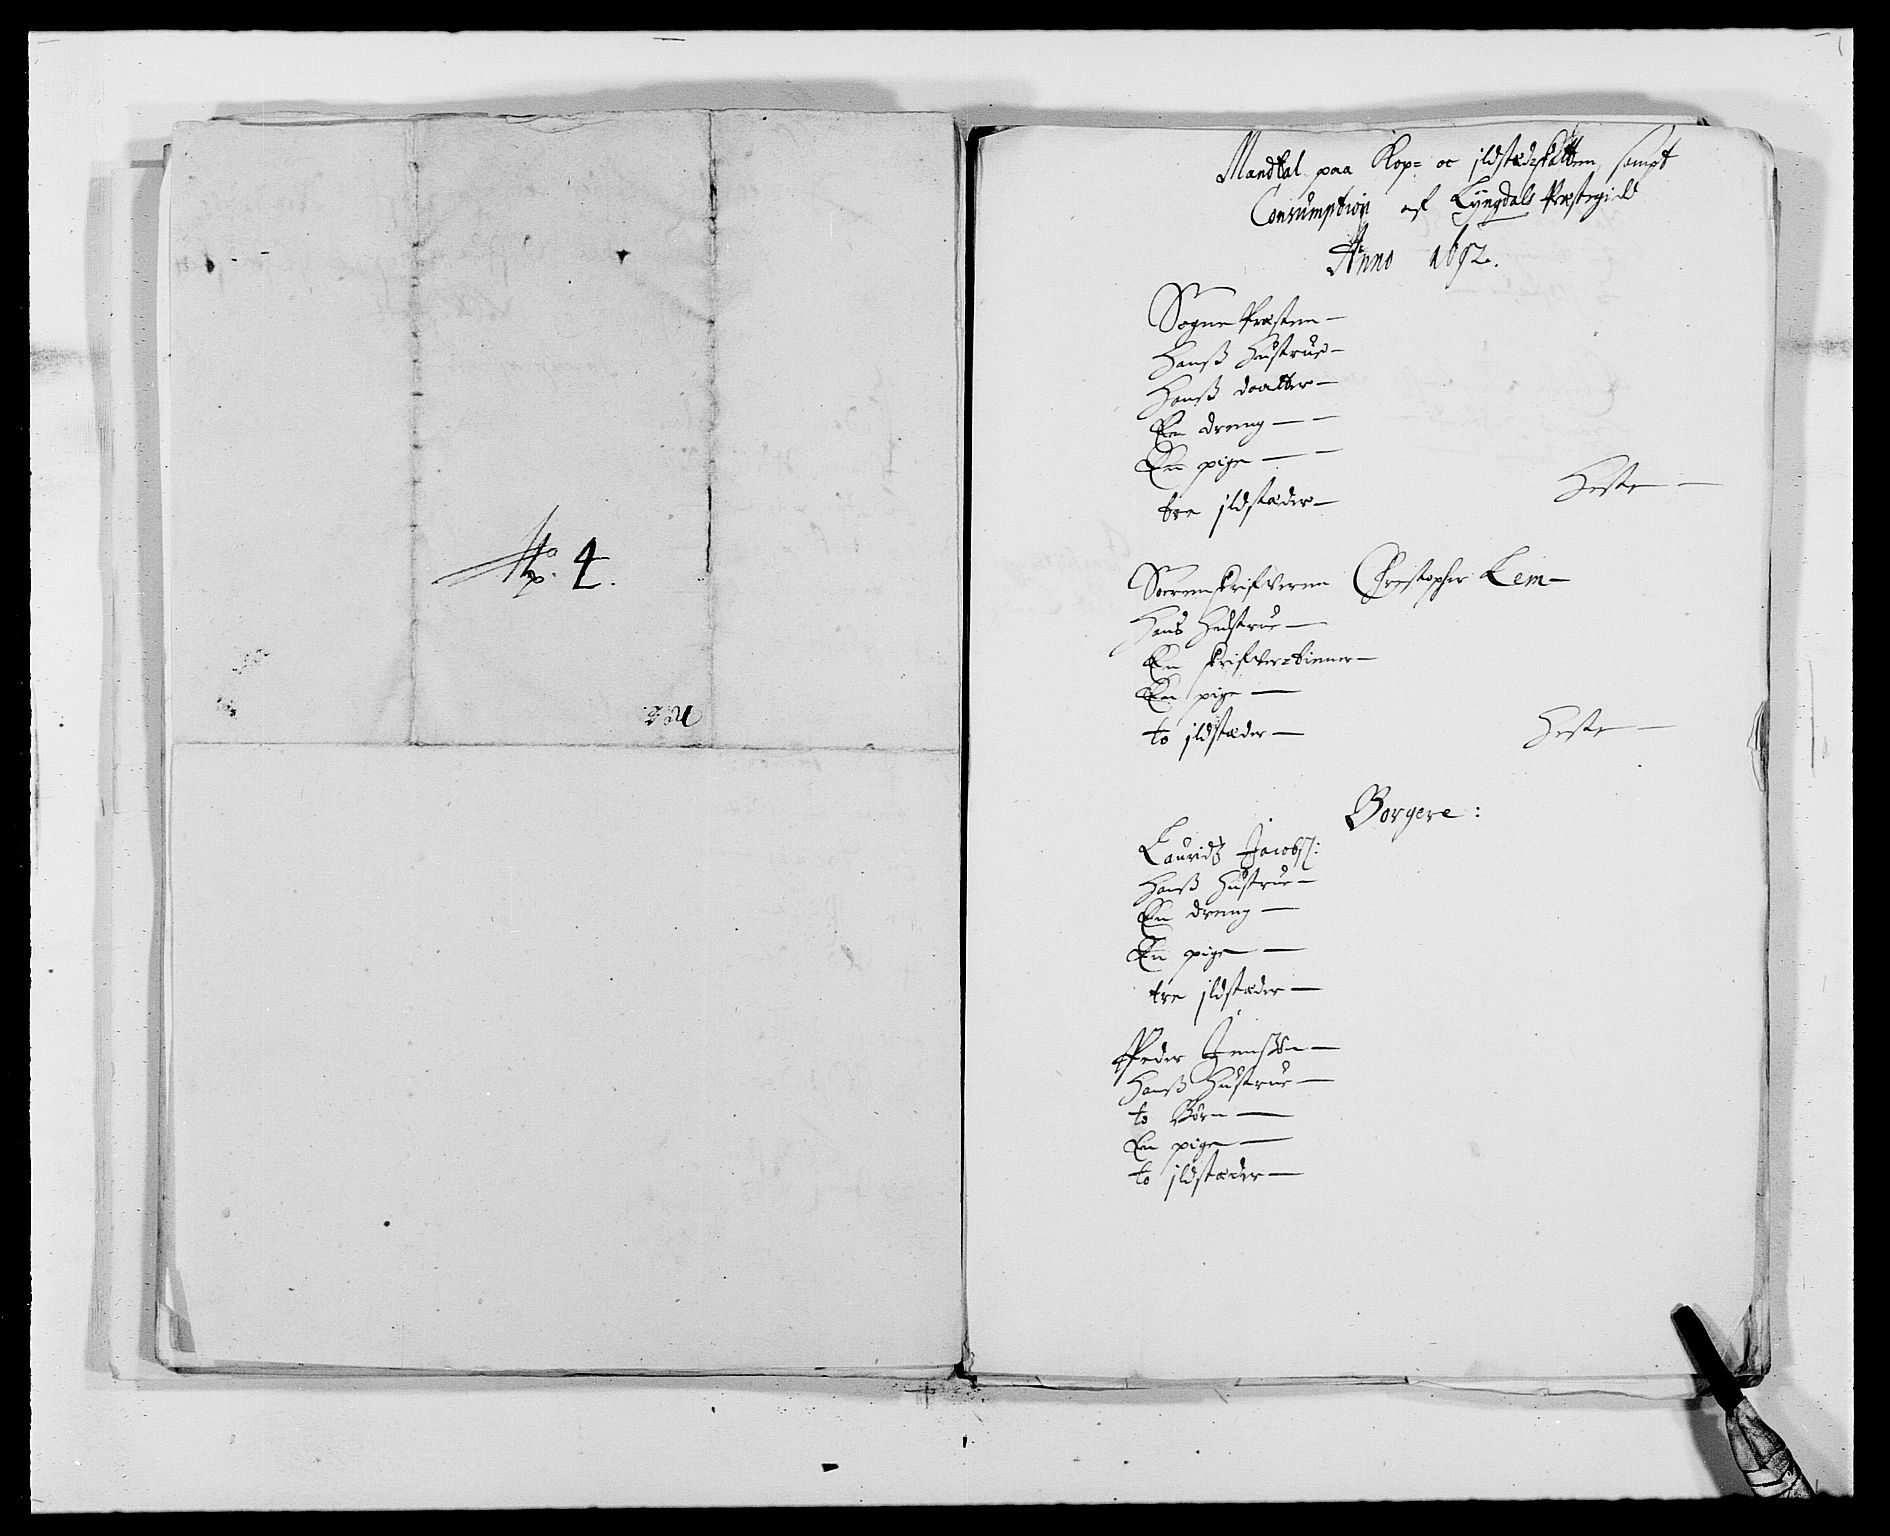 No. 4.
Mandtal paa Kop= oc jldstædskatten, sampt
Consumption af Lyngdals Præstegield
Anno 1692.
Sogne Præsten —
Hanß Hustrue —
Hanß daatter —
En dreng — —
En pige — —
tre jldstæder —
Heste —
Sorenskrifveren Christopher Lem —
Hans Hustrue —
En skrifver=tienner —
En pige —
to jldstæder —
Heste —
Borgere :
Lauridz Jacobß:
Hanß Hustrue —
En dreng —
En pige —
tre jldstæder —
Peder Jensøn —
Hanß Hustrue —
to Børn —
En pige —
to jldstæder —